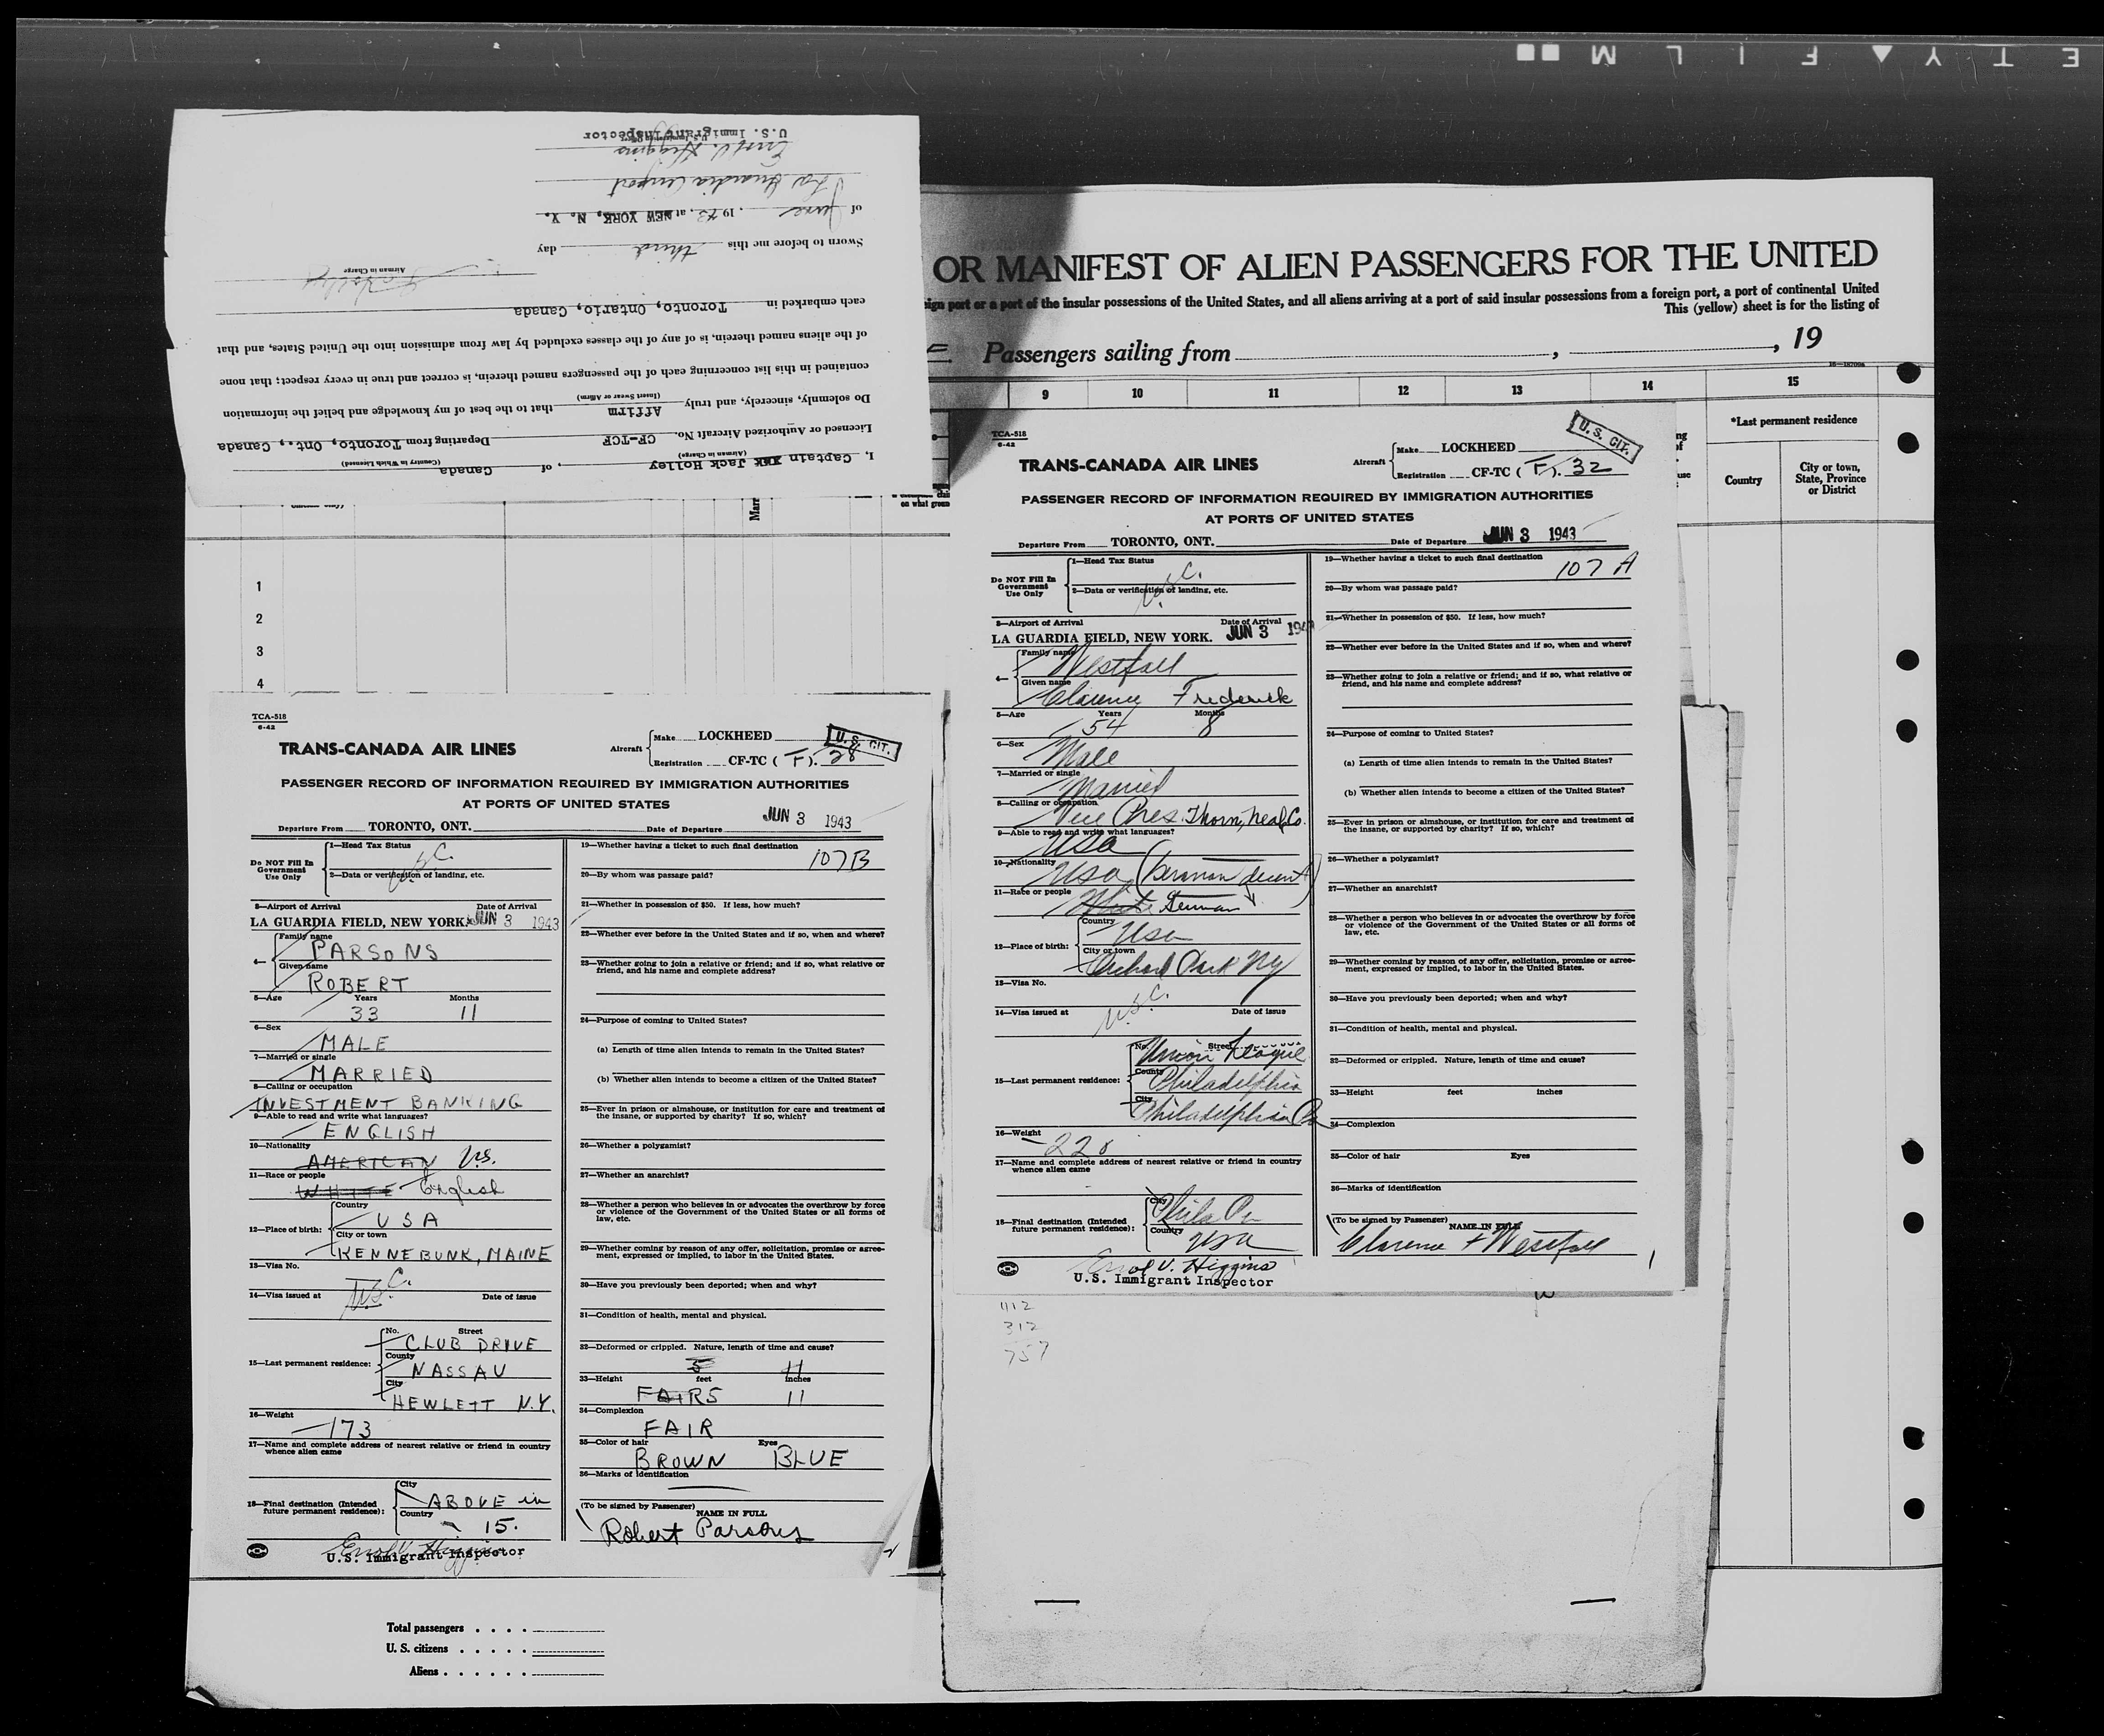 SAFETY FILM
U.S. Immigrant Inspector
Errol V. Higgins
La Guardia Airport
of June, 1943, at NEW YORK, N. Y.
Sworn to before me this third day
Airman in Charge
each embarked in Toronto, Ontario, Canada
of the aliens named therein, is of any of the classes excluded by law from admission into the United States, and that
contained in this list concerning each of the passengers named therein, is correct and true in every respect; that none
(Insert Swear or Affirm)
Do solemnly, sincerely, and truly Affirm that to the best of my knowledge and belief the information
Licensed or Authorized Aircraft No. CF-TCF Departing from Toronto, Ont., Canada
(Airman in Charge) (Country in Which Licensed)
I, Captain Jack Holley, of Canada
OR MANIFEST OF ALIEN PASSENGERS FOR THE UNITED
eign port or a port of the insular possessions of the United States, and all aliens arriving at a port of said insular possessions from a foreign port, a port of continental United
This (yellow) sheet is for the listing of
Passengers sailing from , , 19
9 10 11 12 13 14 15
*Last permanent residence
Country
City or town, State, Province or District
on what groun
Mar
1
2
3
4
TCA-518
6-42
TRANS-CANADA AIR LINES
Aircraft
Make LOCKHEED
Registration CF-TC (F). 28
U. S. CIT.
PASSENGER RECORD OF INFORMATION REQUIRED BY IMMIGRATION AUTHORITIES
AT PORTS OF UNITED STATES
Departure From TORONTO, ONT. Date of Departure JUN 3 1943
Do NOT Fill In Government Use Only
1—Head Tax Status
U.S.C.
2—Data or verification of landing, etc.
3—Airport of Arrival Date of Arrival
LA GUARDIA FIELD, NEW YORK. JUN 3 1943
4—
Family name
PARSONS
Given name
ROBERT
5—Age Years Months
33 11
6—Sex
MALE
7—Married or single
MARRIED
8—Calling or occupation
INVESTMENT BANKING
9—Able to read and write what languages?
ENGLISH
10—Nationality
AMERICAN U.S.
11—Race or people
WHITE English
12—Place of birth:
Country
USA
City or town
KENNEBUNK, MAINE
13—Visa No.
U.S.C.
14—Visa issued at Date of issue
15—Last permanent residence:
No. Street
CLUB DRIVE
County
NASSAU
City
HEWLETT N.Y.
16—Weight
173
17—Name and complete address of nearest relative or friend in country whence alien came
18—Final destination (Intended future permanent residence):
City
ABOVE in
Country
15.
Errol V. Higgins
U.S. Immigrant Inspector
19—Whether having a ticket to such final destination
107B
20—By whom was passage paid?
21—Whether in possession of $50. If less, how much?
22—Whether ever before in the United States and if so, when and where?
23—Whether going to join a relative or friend; and if so, what relative or
friend, and his name and complete address?
24—Purpose of coming to United States?
(a) Length of time alien intends to remain in the United States?
(b) Whether alien intends to become a citizen of the United States?
25—Ever in prison or almshouse, or institution for care and treatment of
the insane, or supported by charity? If so, which?
26—Whether a polygamist?
27—Whether an anarchist?
28—Whether a person who believes in or advocates the overthrow by force
or violence of the Government of the United States or all forms of
law, etc.
29—Whether coming by reason of any offer, solicitation, promise or agree-
ment, expressed or implied, to labor in the United States.
30—Have you previously been deported; when and why?
31—Condition of health, mental and physical.
32—Deformed or crippled. Nature, length of time and cause?
5 11
33—Height feet inches
FAIR5 11
34—Complexion
FAIR
35—Color of hair Eyes
BROWN BLUE
36—Marks of identification
(To be signed by Passenger)
NAME IN FULL
Robert Parsons
2
Total passengers
U. S. citizens
Aliens
TCA-518
6-42
TRANS-CANADA AIR LINES
Aircraft
Make LOCKHEED
Registration CF-TC (F). 32
U. S. CIT.
PASSENGER RECORD OF INFORMATION REQUIRED BY IMMIGRATION AUTHORITIES
AT PORTS OF UNITED STATES
Departure From TORONTO, ONT. Date of Departure JUN 3 1943
Do NOT Fill In Government Use Only
1—Head Tax Status
U.S.C.
2—Data or verification of landing, etc.
3—Airport of Arrival Date of Arrival
LA GUARDIA FIELD, NEW YORK. JUN 3 194
4—
Family name
Westfall
Given name
Clarence Frederick
5—Age Years Months
54 8
6—Sex
Male
7—Married or single
Married
8—Calling or occupation
Vice Pres. Thorn, Neal Co.
9—Able to read and write what languages?
USA
10—Nationality
USA (German decent)
11—Race or people
White German
12—Place of birth:
Country
USA
City or town
Orchard Park NY
13—Visa No.
U.S.C.
14—Visa issued at Date of issue
15—Last permanent residence:
No. Street
Union League
County
Philadelphia
City
Philadelphia Pa
16—Weight
220
17—Name and complete address of nearest relative or friend in country
whence alien came
18—Final destination (Intended future permanent residence):
City
Phila Pa
Country
USA
Errol V. Higgins
U.S. Immigrant Inspector
19—Whether having a ticket to such final destination
107 A
20—By whom was passage paid?
21—Whether in possession of $50. If less, how much?
22—Whether ever before in the United States and if so, when and where?
23—Whether going to join a relative or friend; and if so, what relative or
friend, and his name and complete address?
24—Purpose of coming to United States?
(a) Length of time alien intends to remain in the United States?
(b) Whether alien intends to become a citizen of the United States?
25—Ever in prison or almshouse, or institution for care and treatment of
the insane, or supported by charity? If so, which?
26—Whether a polygamist?
27—Whether an anarchist?
28—Whether a person who believes in or advocates the overthrow by force
or violence of the Government of the United States or all forms of
law, etc.
29—Whether coming by reason of any offer, solicitation, promise or agree-
ment, expressed or implied, to labor in the United States.
30—Have you previously been deported; when and why?
31—Condition of health, mental and physical.
32—Deformed or crippled. Nature, length of time and cause?
33—Height feet inches
34—Complexion
35—Color of hair Eyes
36—Marks of identification
(To be signed by Passenger)
NAME IN FULL
Clarence F Westfall
1
912
312
757